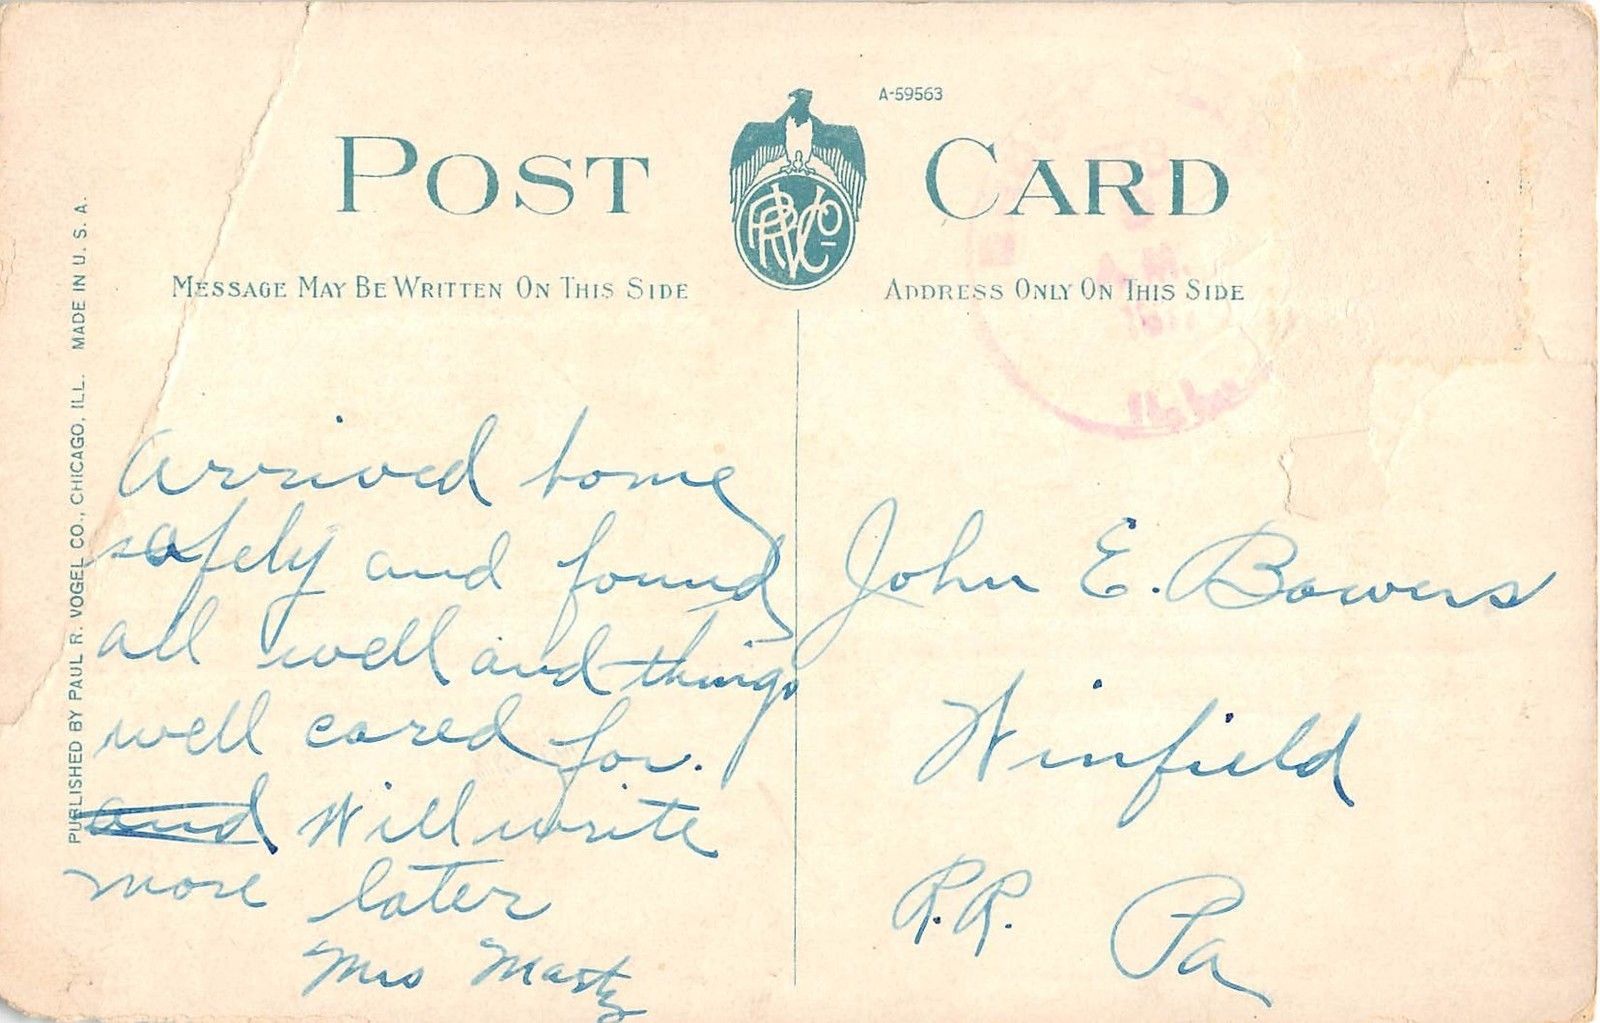 A-59563
POST CARD
PRVCo
MESSAGE MAY BE WRITTEN ON THIS SIDE
ADDRESS ONLY ON THIS SIDE
PUBLISHED BY PAUL R. VOGEL CO., CHICAGO, ILL. MADE IN U. S. A.
Arrived home
safely and found
all well and things
well cared for.
and Will write
more later
Mrs Martz
John E. Bowers
Winfield
R.R. Pa